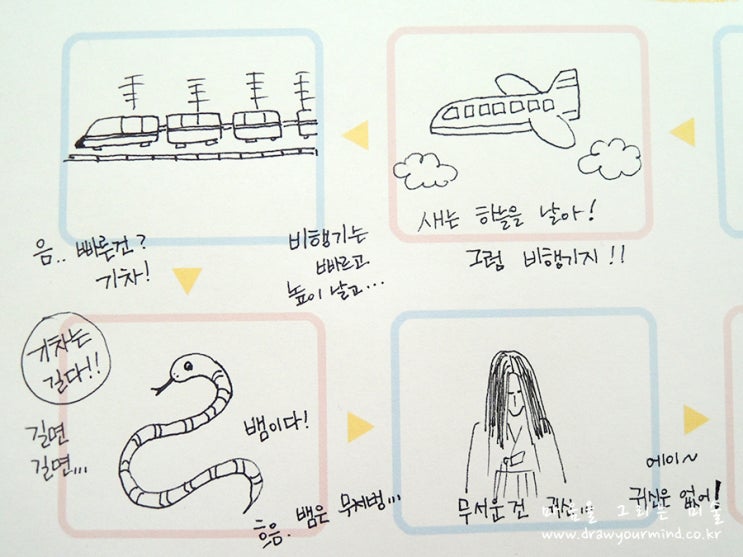 새는 하늘을 날아!
그럼 비행기지!!
비행기는
빠르고
높이 날고...
음.. 빠른건?
기차!
기차는
길다!!
길면
길면...
뱀이다!
흐음. 뱀은 무서벙...
무서운 건 귀신...
에이~
귀신은 없어!
마음을 그리는 미술
www.drawyourmind.co.kr